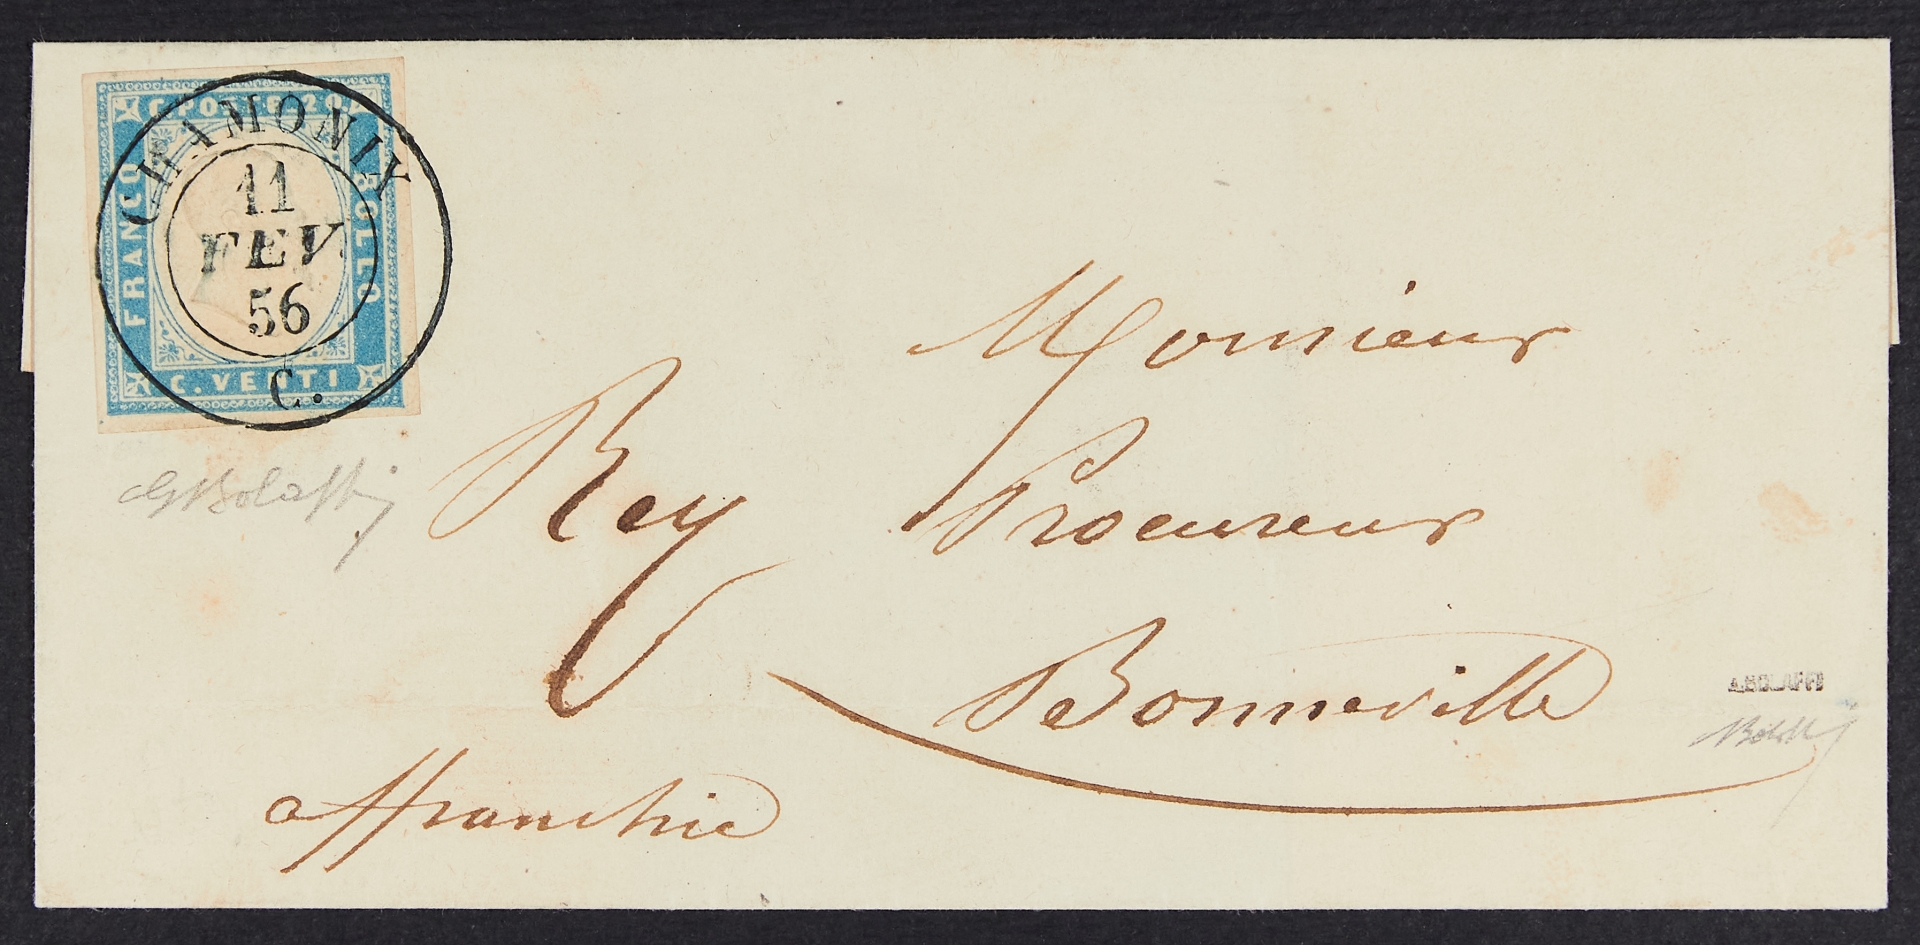 C. POSTE 20
FRANCO
BOLLO
C. VENTI
CHAMONIX
11
FEV.
56
C.
Monsieur
Rey Procureur
Bonneville
affranchie
A.BOLAFFI